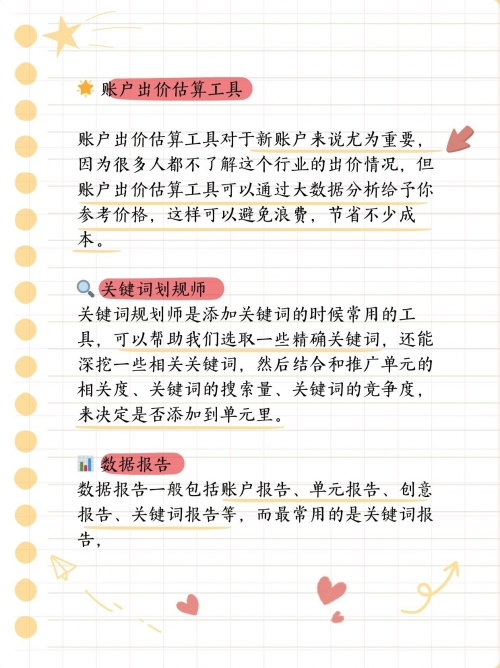 账户出价估算工具
账户出价估算工具对于新账户来说尤为重要，
因为很多人都不了解这个行业的出价情况，但
账户出价估算工具可以通过大数据分析给予你
参考价格，这样可以避免浪费，节省不少成
本。
关键词划规师
关键词规划师是添加关键词的时候常用的工
具，可以帮助我们选取一些精确关键词，还能
深挖一些相关关键词，然后结合和推广单元的
相关度、关键词的搜索量、关键词的竞争度，
来决定是否添加到单元里。
数据报告
数据报告一般包括账户报告、单元报告、创意
报告、关键词报告等，而最常用的是关键词报
告，